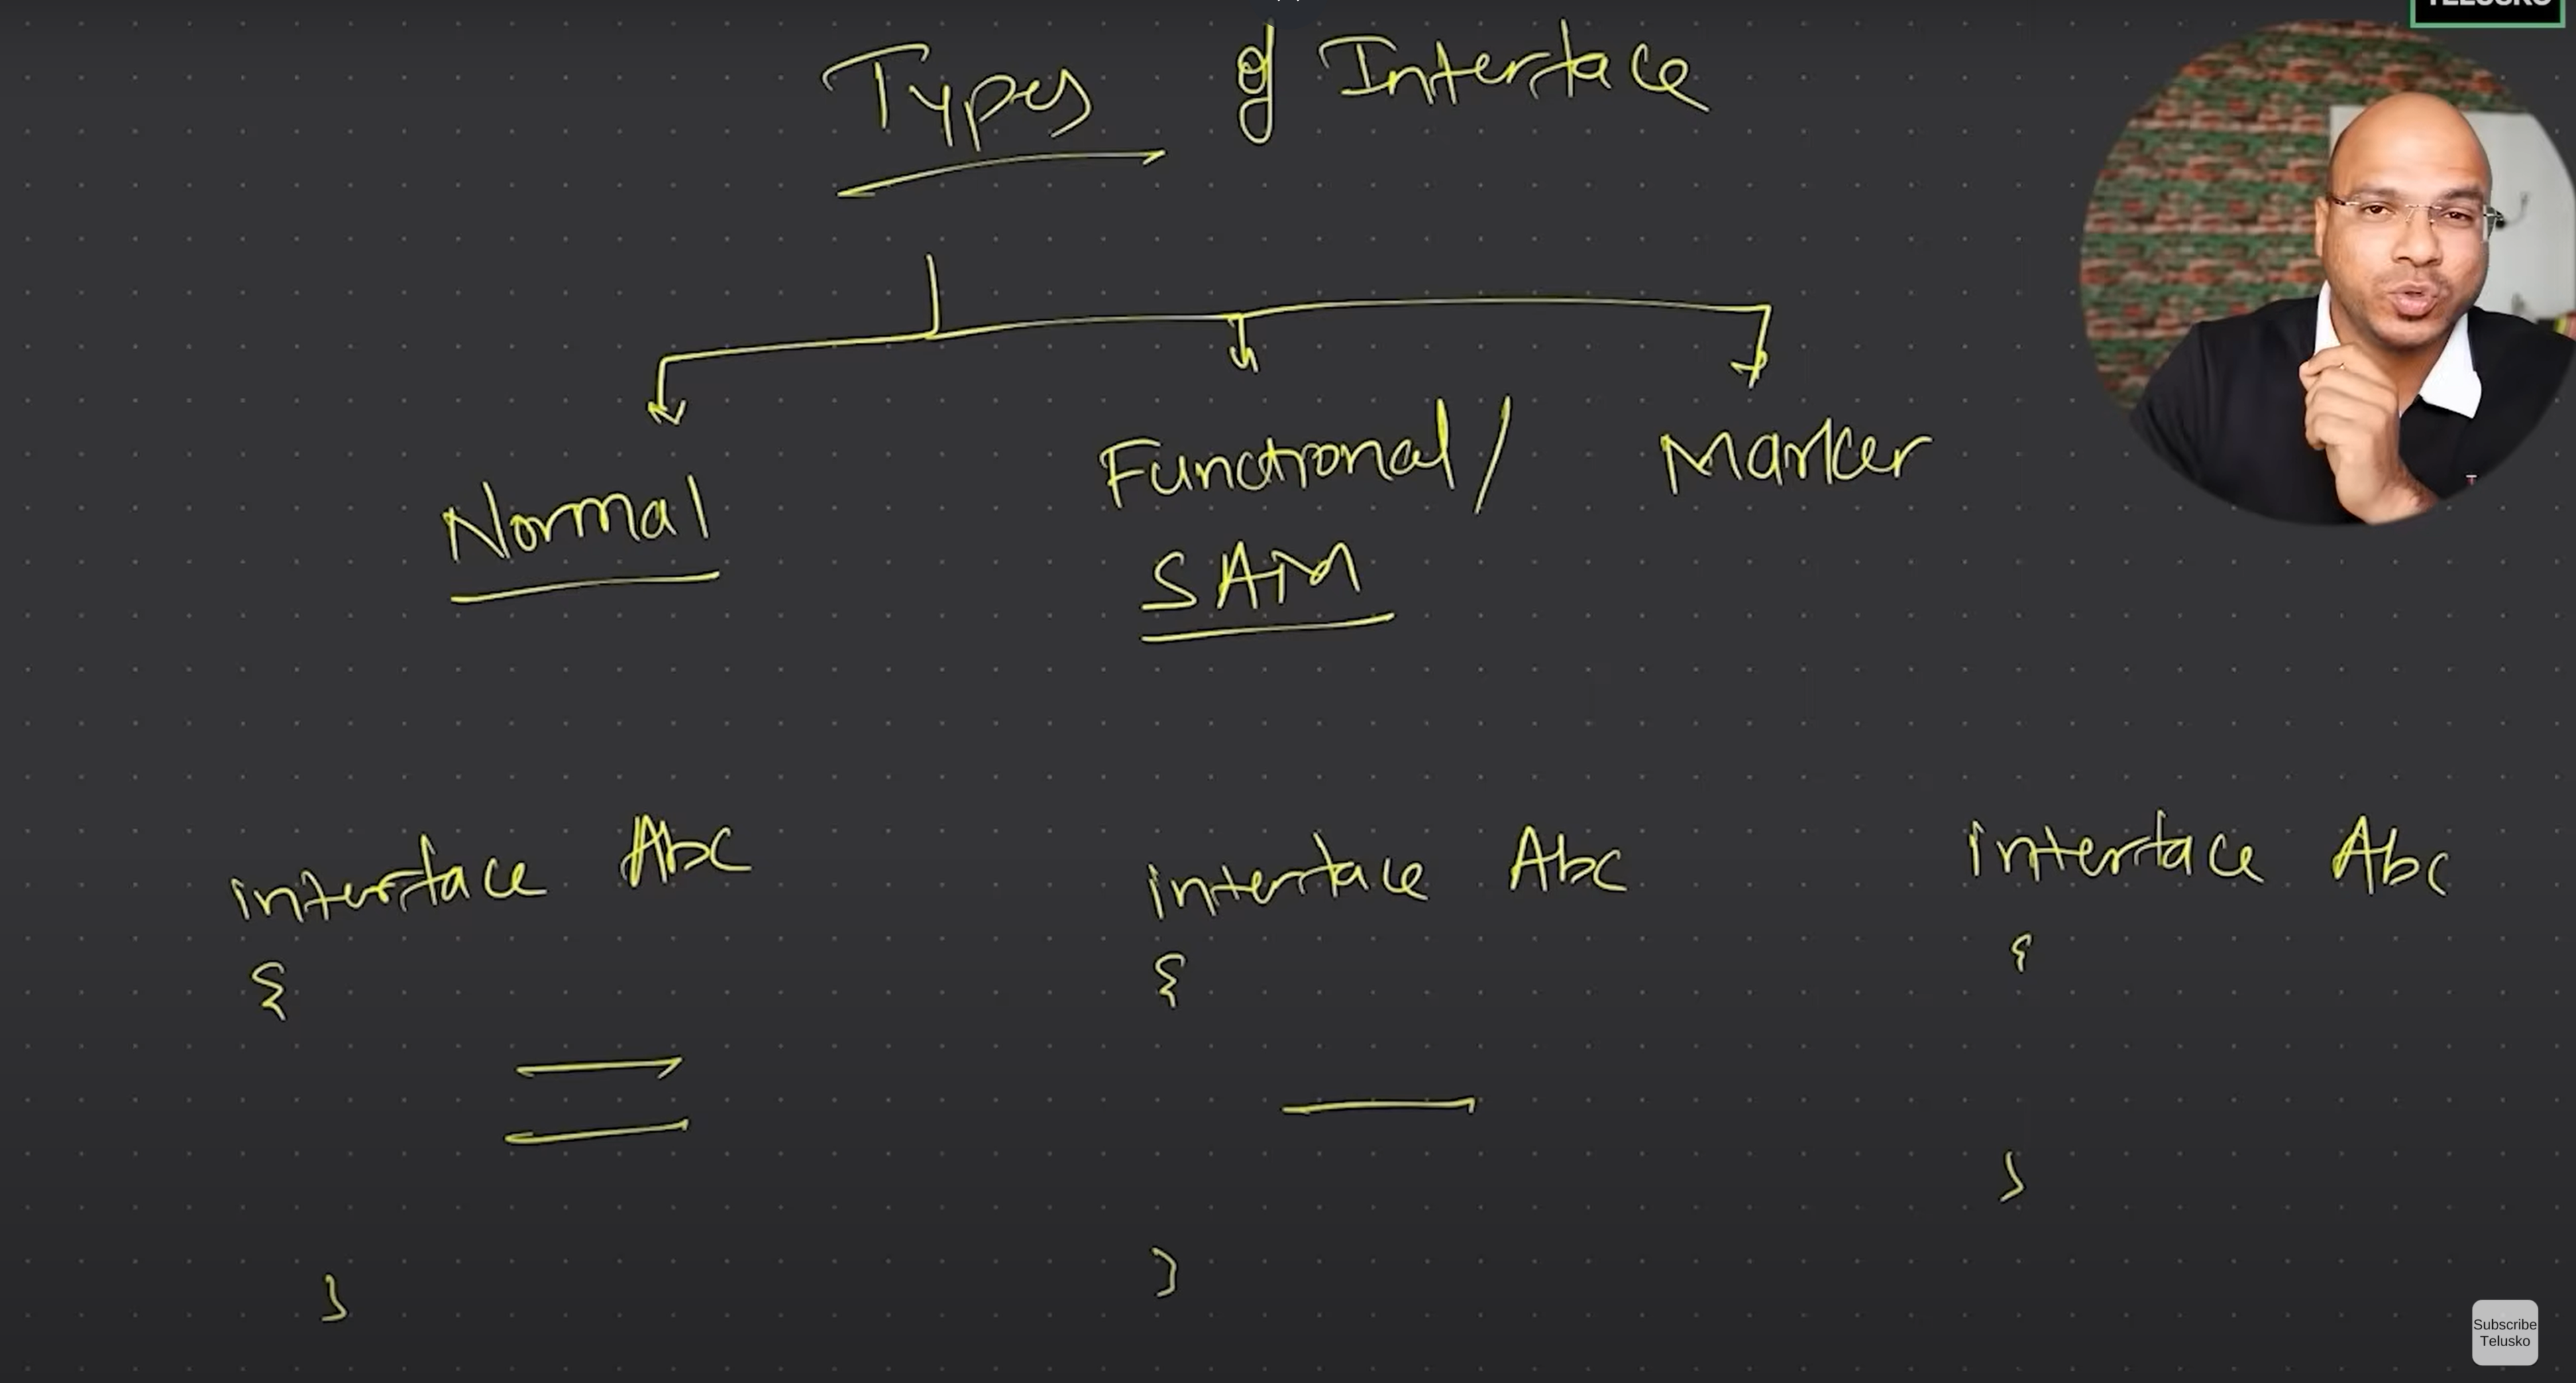 TELUSKO
Types of Interface
Normal
Functional/
SAM
Marker
interface Abc
{
}
interface Abc
{
}
interface Abc
{
}
Subscribe
Telusko